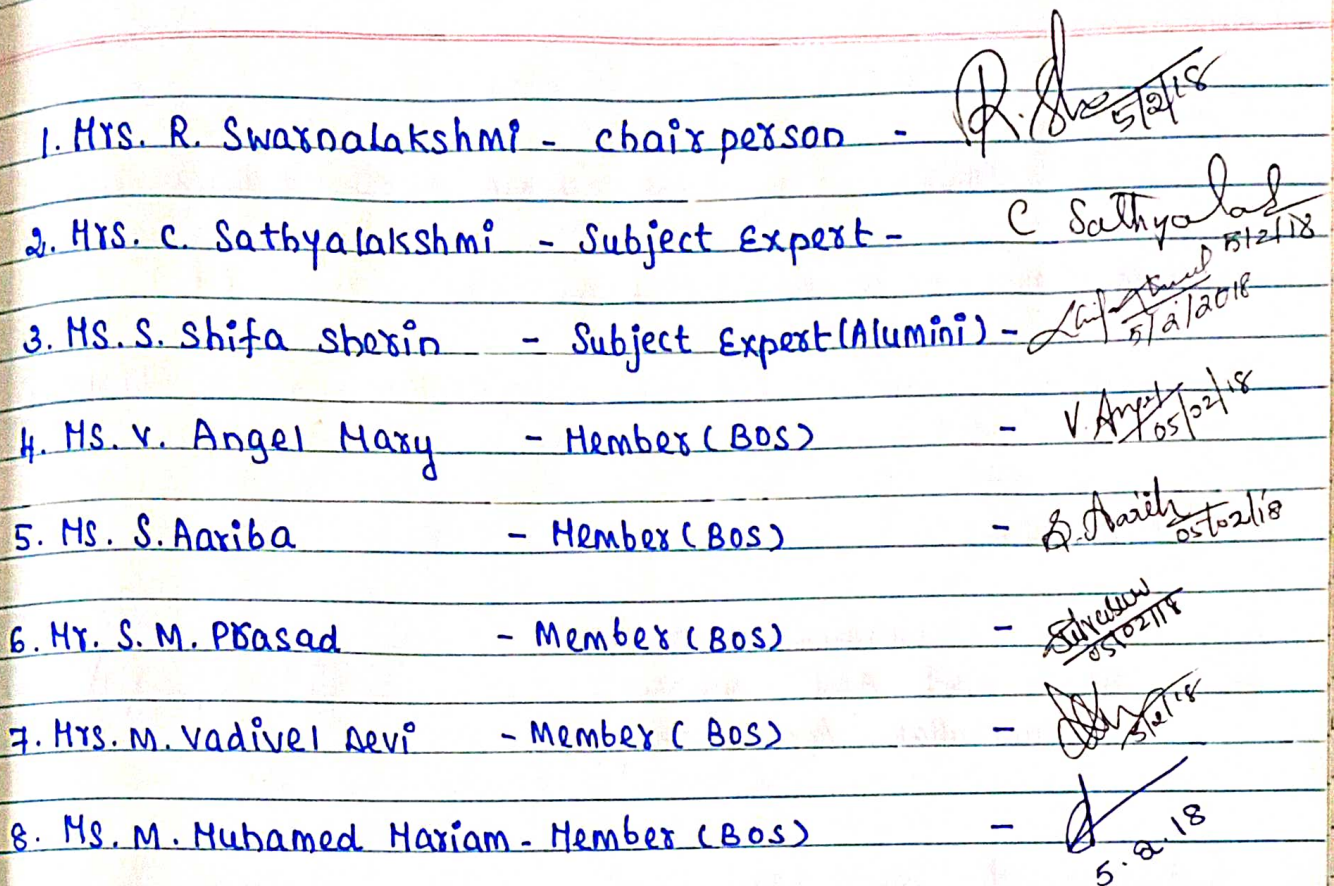 1. Mrs. R. Swarnalakshmi - chairperson - R. 5/2/18
2. Mrs. C. Sathyalakshmi - Subject Expert - C Sathyalak 5/2/18
3. Ms. S. Shifa Sherin - Subject Expert (Alumini) - 5/2/2018
4. Ms. V. Angel Mary - Member (BOS) - V. Angel 05/02/18
5. Ms. S. Aariba - Member (BOS) - S. Aarib 05/02/18
6. Mr. S. M. Prasad - Member (BOS) - 05/02/18
7. Mrs. M. Vadivel Devi - Member (BOS) - 5/2/18
8. Ms. M. Muhamed Mariam - Member (BOS) - 5.2.18